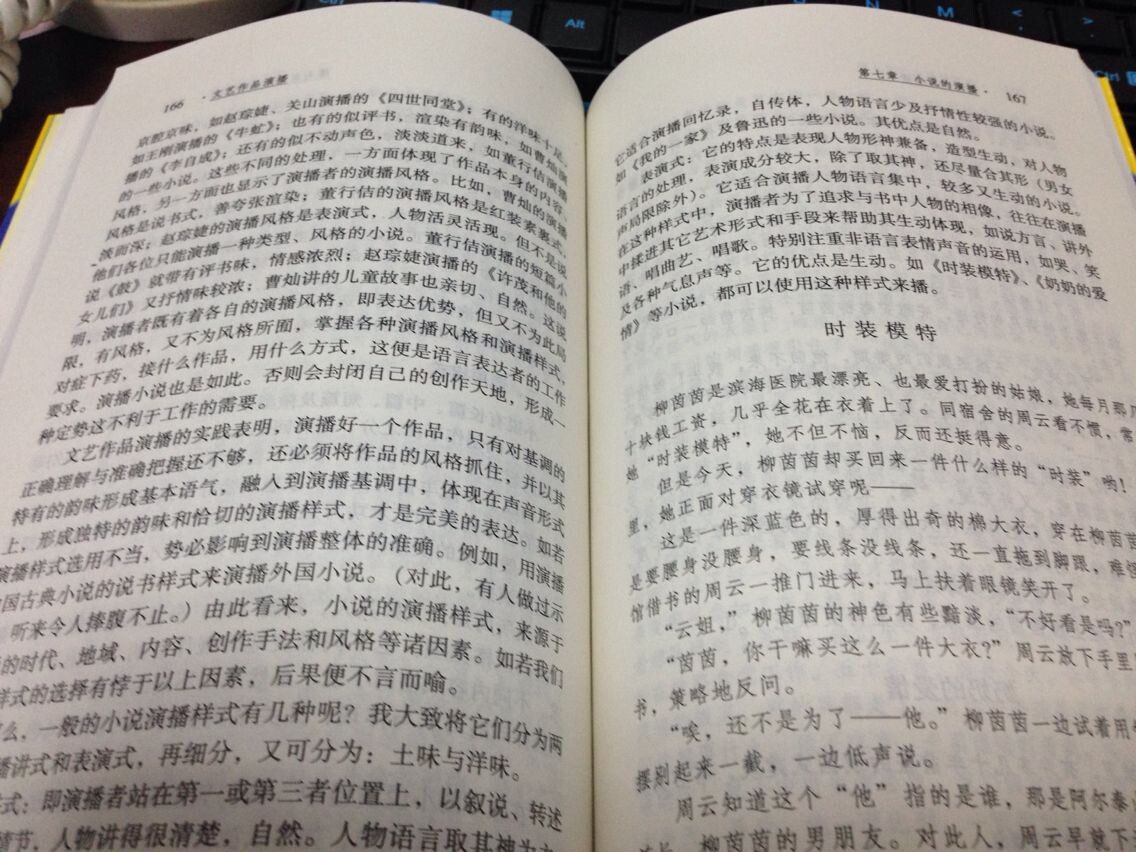 166 ·文艺作品演播
京腔京味，如赵琮婕、关山演播的《四世同堂》；有的洋味十足，
如王刚演播的《牛虻》；也有的似评书，渲染有韵味，如曹灿演
播的《李自成》；还有的似不动声色，淡淡道来，如董行佶演播
的一些小说。这些不同的处理，一方面体现了作品本身的内容、
风格，另一方面也显示了演播者的演播风格。比如，曹灿的演播
风格是说书式，善夸张渲染；董行佶的演播风格是红装素裹式，
淡而深；赵琮婕的演播风格是表演式，人物活灵活现。但不是说
他们各位只能演播一种类型、风格的小说。董行佶演播的短篇小
说《鼓》就带有评书味，情感浓烈；赵琮婕演播的《许茂和他的
女儿们》又抒情味较浓；曹灿讲的儿童故事也亲切、自然。这说
明，演播者既有着各自的演播风格，即表达优势，但又不为此局
限，有风格，又不为风格所囿，掌握各种演播风格和演播样式，
对症下药，接什么作品，用什么方式，这便是语言表达者的工作
要求。演播小说也是如此。否则会封闭自己的创作天地，形成一
种定势这不利于工作的需要。
文艺作品演播的实践表明，演播好一个作品，只有对基调的
正确理解与准确把握还不够，还必须将作品的风格抓住，并以其
特有的韵味形成基本语气，融入到演播基调中，体现在声音形式
上，形成独特的韵味和恰切的演播样式，才是完美的表达。如若
演播样式选用不当，势必影响到演播整体的准确。例如，用演播
国古典小说的说书样式来演播外国小说。（对此，有人做过示
听来令人捧腹不止。）由此看来，小说的演播样式，来源于
的时代、地域、内容、创作手法和风格等诸因素。如若我们
样式的选择有悖于以上因素，后果便不言而喻。
么，一般的小说演播样式有几种呢？我大致将它们分为两
播讲式和表演式，再细分，又可分为：土味与洋味。
式：即演播者站在第一或第三者位置上，以叙说、转述
情节，人物讲得很清楚，自然。人物语言取其神为
第七章 小说的演播· 167
它适合演播回忆录，自传体，人物语言少及抒情性较强的小说。
如《我的一家》及鲁迅的一些小说。其优点是自然。
表演式：它的特点是表现人物形神兼备，造型生动，对人物
语言的处理，表演成分较大，除了取其神，还尽量合其形（男女
声局限除外）。它适合演播人物语言集中，较多又生动的小说。
在这种样式中，演播者为了追求与书中人物的相像，往往在演播
中揉进其它艺术形式和手段来帮助其生动体现，如说方言、讲外
语、唱曲艺、唱歌。特别注重非语言表情声音的运用，如哭、笑
及各种气息声等。它的优点是生动。如《时装模特》、《奶奶的爱
情》等小说，都可以使用这种样式来播。
时装模特
柳茵茵是滨海医院最漂亮、也最爱打扮的姑娘，她每月那几
十块钱工资，几乎全花在衣着上了。同宿舍的周云看不惯，常
她“时装模特”，她不但不恼，反而还挺得意。
但是今天，柳茵茵却买回来一件什么样的“时装”哟！
里，她正面对穿衣镜试穿呢——
这是一件深蓝色的，厚得出奇的棉大衣，穿在柳茵茵
是要腰身没腰身，要线条没线条，还一直拖到脚跟，难怪
馆借书的周云一推门进来，马上扶着眼镜笑开了。
“云姐，”柳茵茵的神色有些黯淡，“不好看是吗？”
“茵茵，你干嘛买这么一件大衣？”周云放下手里
书，策略地反问。
“唉，还不是为了——他。”柳茵茵一边试着用
摆别起来一截，一边低声说。
周云知道这个“他”指的是谁，那是阿尔泰
柳茵茵的男朋友。对此人，周云早就下
Alt
M
Ctrl